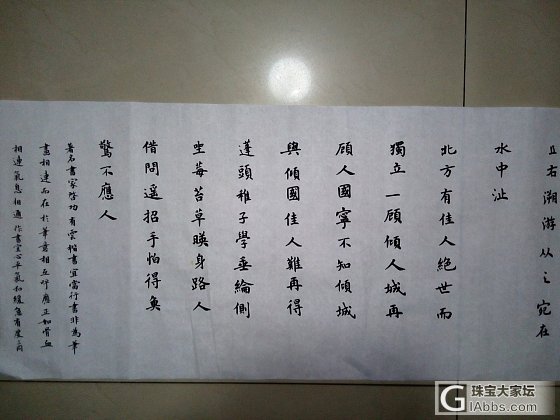 且右溯游从之宛在
水中沚
北方有佳人絕世而
獨立一顧傾人城再
顧人國寧不知傾城
與傾國佳人難再得
蓬頭稚子學垂綸側
坐莓苔草暎身路人
借問遥招手怕得魚
驚不應人
著名書家啓功有雲楷書宜當行書非為筆
畫相連而在於筆意相互呼應正如骨血
相連氣息相通作書宜心平氣和緩急有度
珠宝大家坛
GIAbbs.com